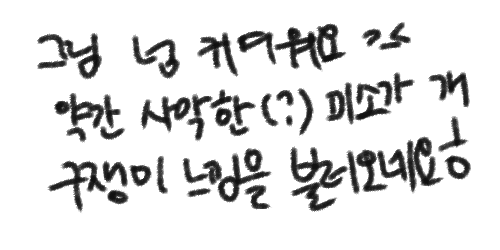 그냥 넘 귀여워요 ㅈㅅ
약간 사악한(?) 미소가 개
구쟁이 느낌을 불러오네요용